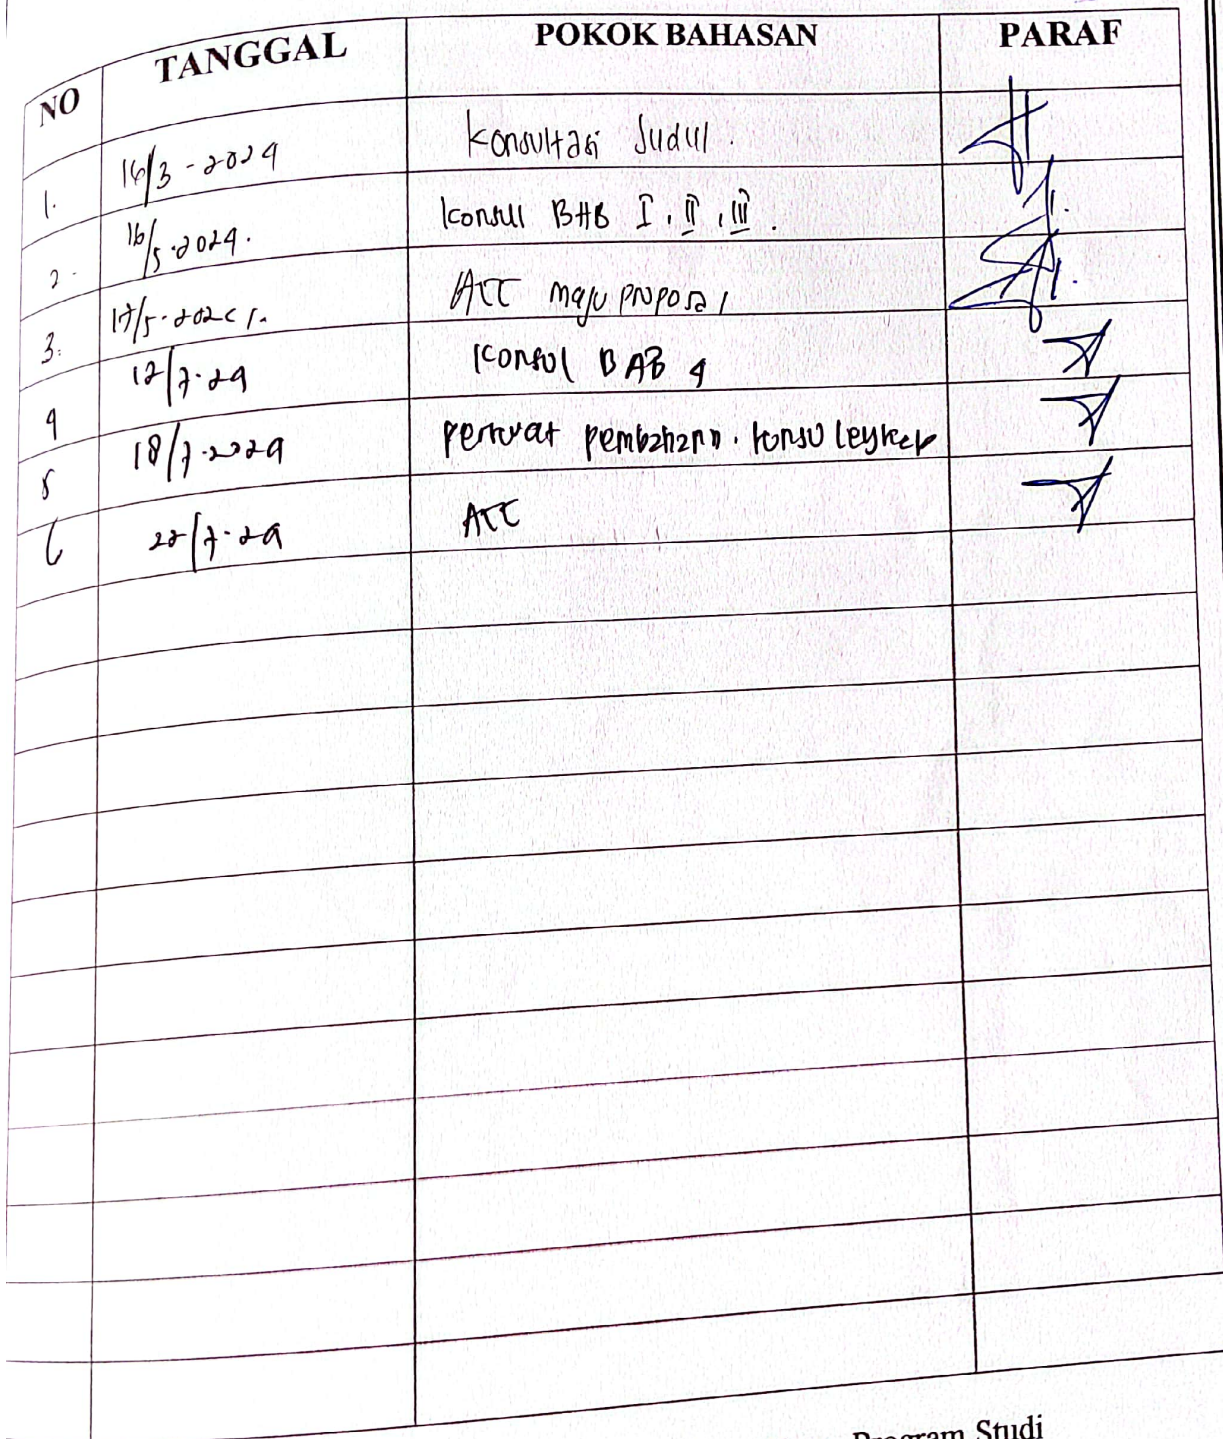 NO TANGGAL POKOK BAHASAN PARAF
1. 16/3 - 2024 Konsultasi Judul.
2. 16/5.2024. Konsul BAB I, II, III.
3. 17/5.2024 ACC maju proposal
4 12/7.24 Konsol BAB 4
5 18/7.2024 perkuat pembahasan.
6 22/7.24 ACC
Program Studi